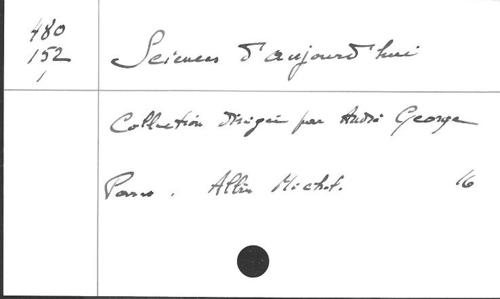 480
152
1
Sciences d'aujourd'hui
Collection dirigée par André George
Paris. Albin Michel. 16